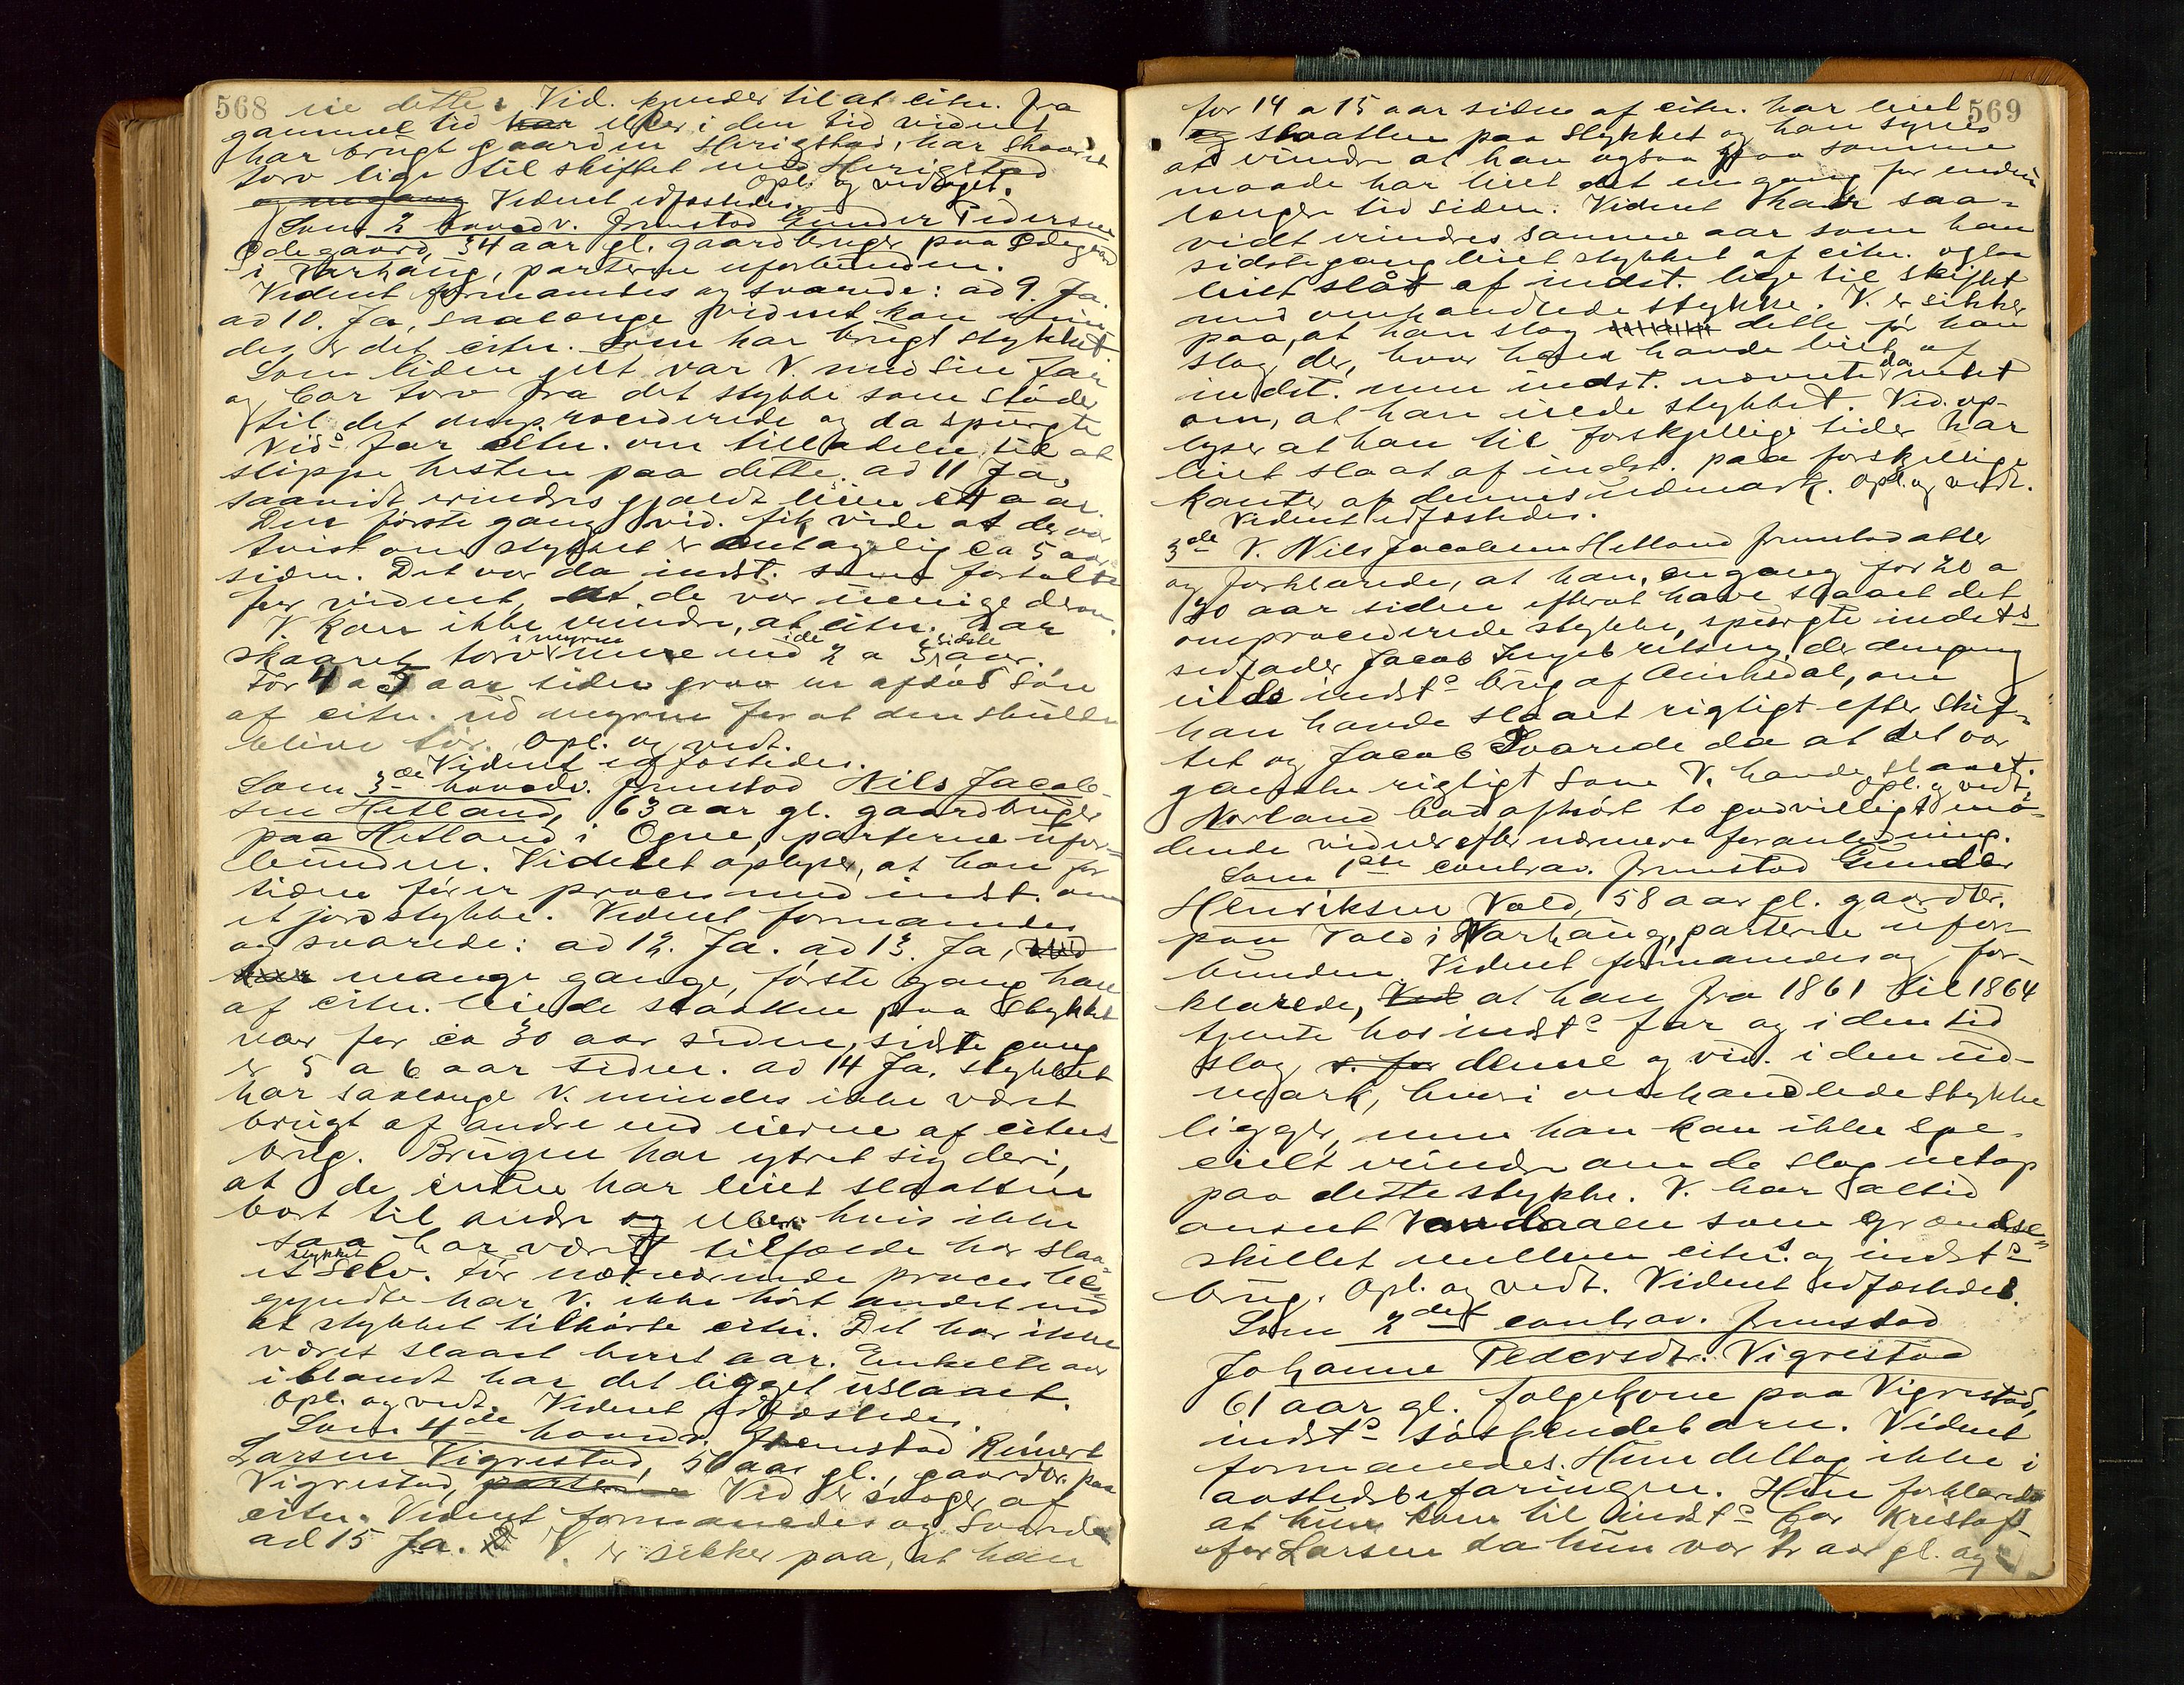 568
ne dette. Vid. kjender til at citn. fra
gammel tid har eller i den tid vidnet
har brugt gaarden Herigstad, har skaaret
torv lige til skiftet med Herigstad
og engang Opl. og vedtaget. Vidnet edfæstedes.
Som 2 hovedv. fremstod Gunder Pedersen
Ødegaard, 34 aar gl. gaardbruger paa Ødegaard
i Varhaug, parterne uforbunden.
Vidnet formantes og svarede: ad 9. Ja.
ad 10. Ja, saalænge vidnet kan min-
des er det citn. som har brugt stykket.
Som liden gut var V. med sin far
og bar torv fra det stykke som støder
til det omprocederede og da spurgte
Vids far citn. om tilladelse til at
slippe hesten paa dette. ad 11 Ja,
saavidt erindres gjaldt leien ett aar.
Den første gang vid. fik vide at der var
tvist om stykket er antagelig ca 5 aar
siden. Det var da indst. som fortalte
for vidnet, at de var uenige derom.
V. kan ikke erindre, at citn. har
skaaret torv i myren mere end i de 2 a 3 sidste aar.
For 4 a 5 aar siden grov en afdød søn
af citn. ud myren for at den skulde
blive tør. Opl. og vedt.
Vidnet edfæstedes.
Som 3de hovedv. fremstod Nils Jacob-
sen Hetland, 63 aar gl. gaardbruger
paa Hetland i Ogne, parterne ufor-
bunden. Vidnet oplyser, at han for
tiden fører proces med indst. om
et jordstykke. Vidnet formanedes
og svarede: ad 12. Ja. ad 13. Ja,
mange gange, første gang han
af citn. leiede slaatten paa stykket
var for ca 30 aar siden, sidste gang
er 5 a 6 aar siden. ad 14 Ja. Stykket
har saalænge V. mindes ikke været
brugt af andre end eierne af citns
brug. Brugen har ytret sig deri,
at de enten har leiet slaatten
bort til andre og eller hvis ikke
saa har været tilfælde har slaa-
et stykket selv. Før nærværende proces be-
gyndte har V. ikke hørt andet end
at stykket tilhørte citn. Det har ikke
været slaaet hvert aar. Enkelte aar
iblandt har det ligget uslaaet.
Opl. og vedt. Vidnet edfæstedes.
Som 4de hovedv. fremstod Reinert
Larsen Vigrestad, 56 aar gl., gaardbr. paa
Vigrestad, parterne Vid er svoger af
citn. Vidnet formanedes og svarede
ad 15 Ja. V. er sikker paa, at han
569
for 14 a 15 aar siden af citn. har leiet
og slaatten paa stykket og han synes
at erindre at han ogsaa paa samme
maade har leiet det en gang for endnu
længere tid siden. Vidnet har saa-
vidt erindres samme aar som han
sidste gang leiet stykket af citn. ogsaa
leiet slåt af indst. lige til skiftet
med omhandlede stykke. V. er sikker
paa, at han slog dette før han
slog der, hvor han havde leiet af
indst. men indst. nævnte da intet
om, at han eiede stykket. Vid. op-
lyser at han til forskjellige tider har
leiet slaat af indst. paa forskjellige
kanter af dennes udmark. Opl. og vedt.
Vidnet edfæstedes.
3de V. Nils Jacobsen Hetland fremstod atter
og forklarede, at han, engang for 20 a
30 aar siden efterat have slaaet det
omprocederede stykke, spurgte indsts
sedfader Jacob Ingebretsen, der dengang
eiede indsts brug af Auihedal, om
han havde slaaet rigtigt efter skif-
tet og Jacob svarede da at det var
ganske rigtigt som V. havde slaaet.
Opl. og vedt.
Norland bad afhørt to godvilligt mø-
dende vidner efter nærmere foranledning.
Som 1ste contrav. fremstod Gunder
Henriksen Vold, 58 aar gl. gaardbr.
paa Vold i Varhaug, parterne ufor-
bunden. Vidnet formanedes og for-
klarede, Ved at han fra 1861 til 1864
tjente hos indsts far og i den tid
slog s. far denne og vid. i den ud-
mark, hvori omhandlede stykke
ligger, men han kan ikke spe-
cielt erindre om de slog netop
paa dette stykke. V. har altid
anseet Vandaaen som grændse-
skillet mellem citns og indsts
brug. Opl. og vedt. Vidnet edfæstedes.
Som 2det contrav. fremstod
Johanne Pedersdtr. Vigrestad
61 aar gl. følgekone paa Vigrestad,
indsts søskendebarn. Vidnet
formanedes. Hun deltog ikke i
aastedsbefaringen. Hun forklarede
at hun kom til indsts far Kristof-
fer Larsen da hun var aar gl. og